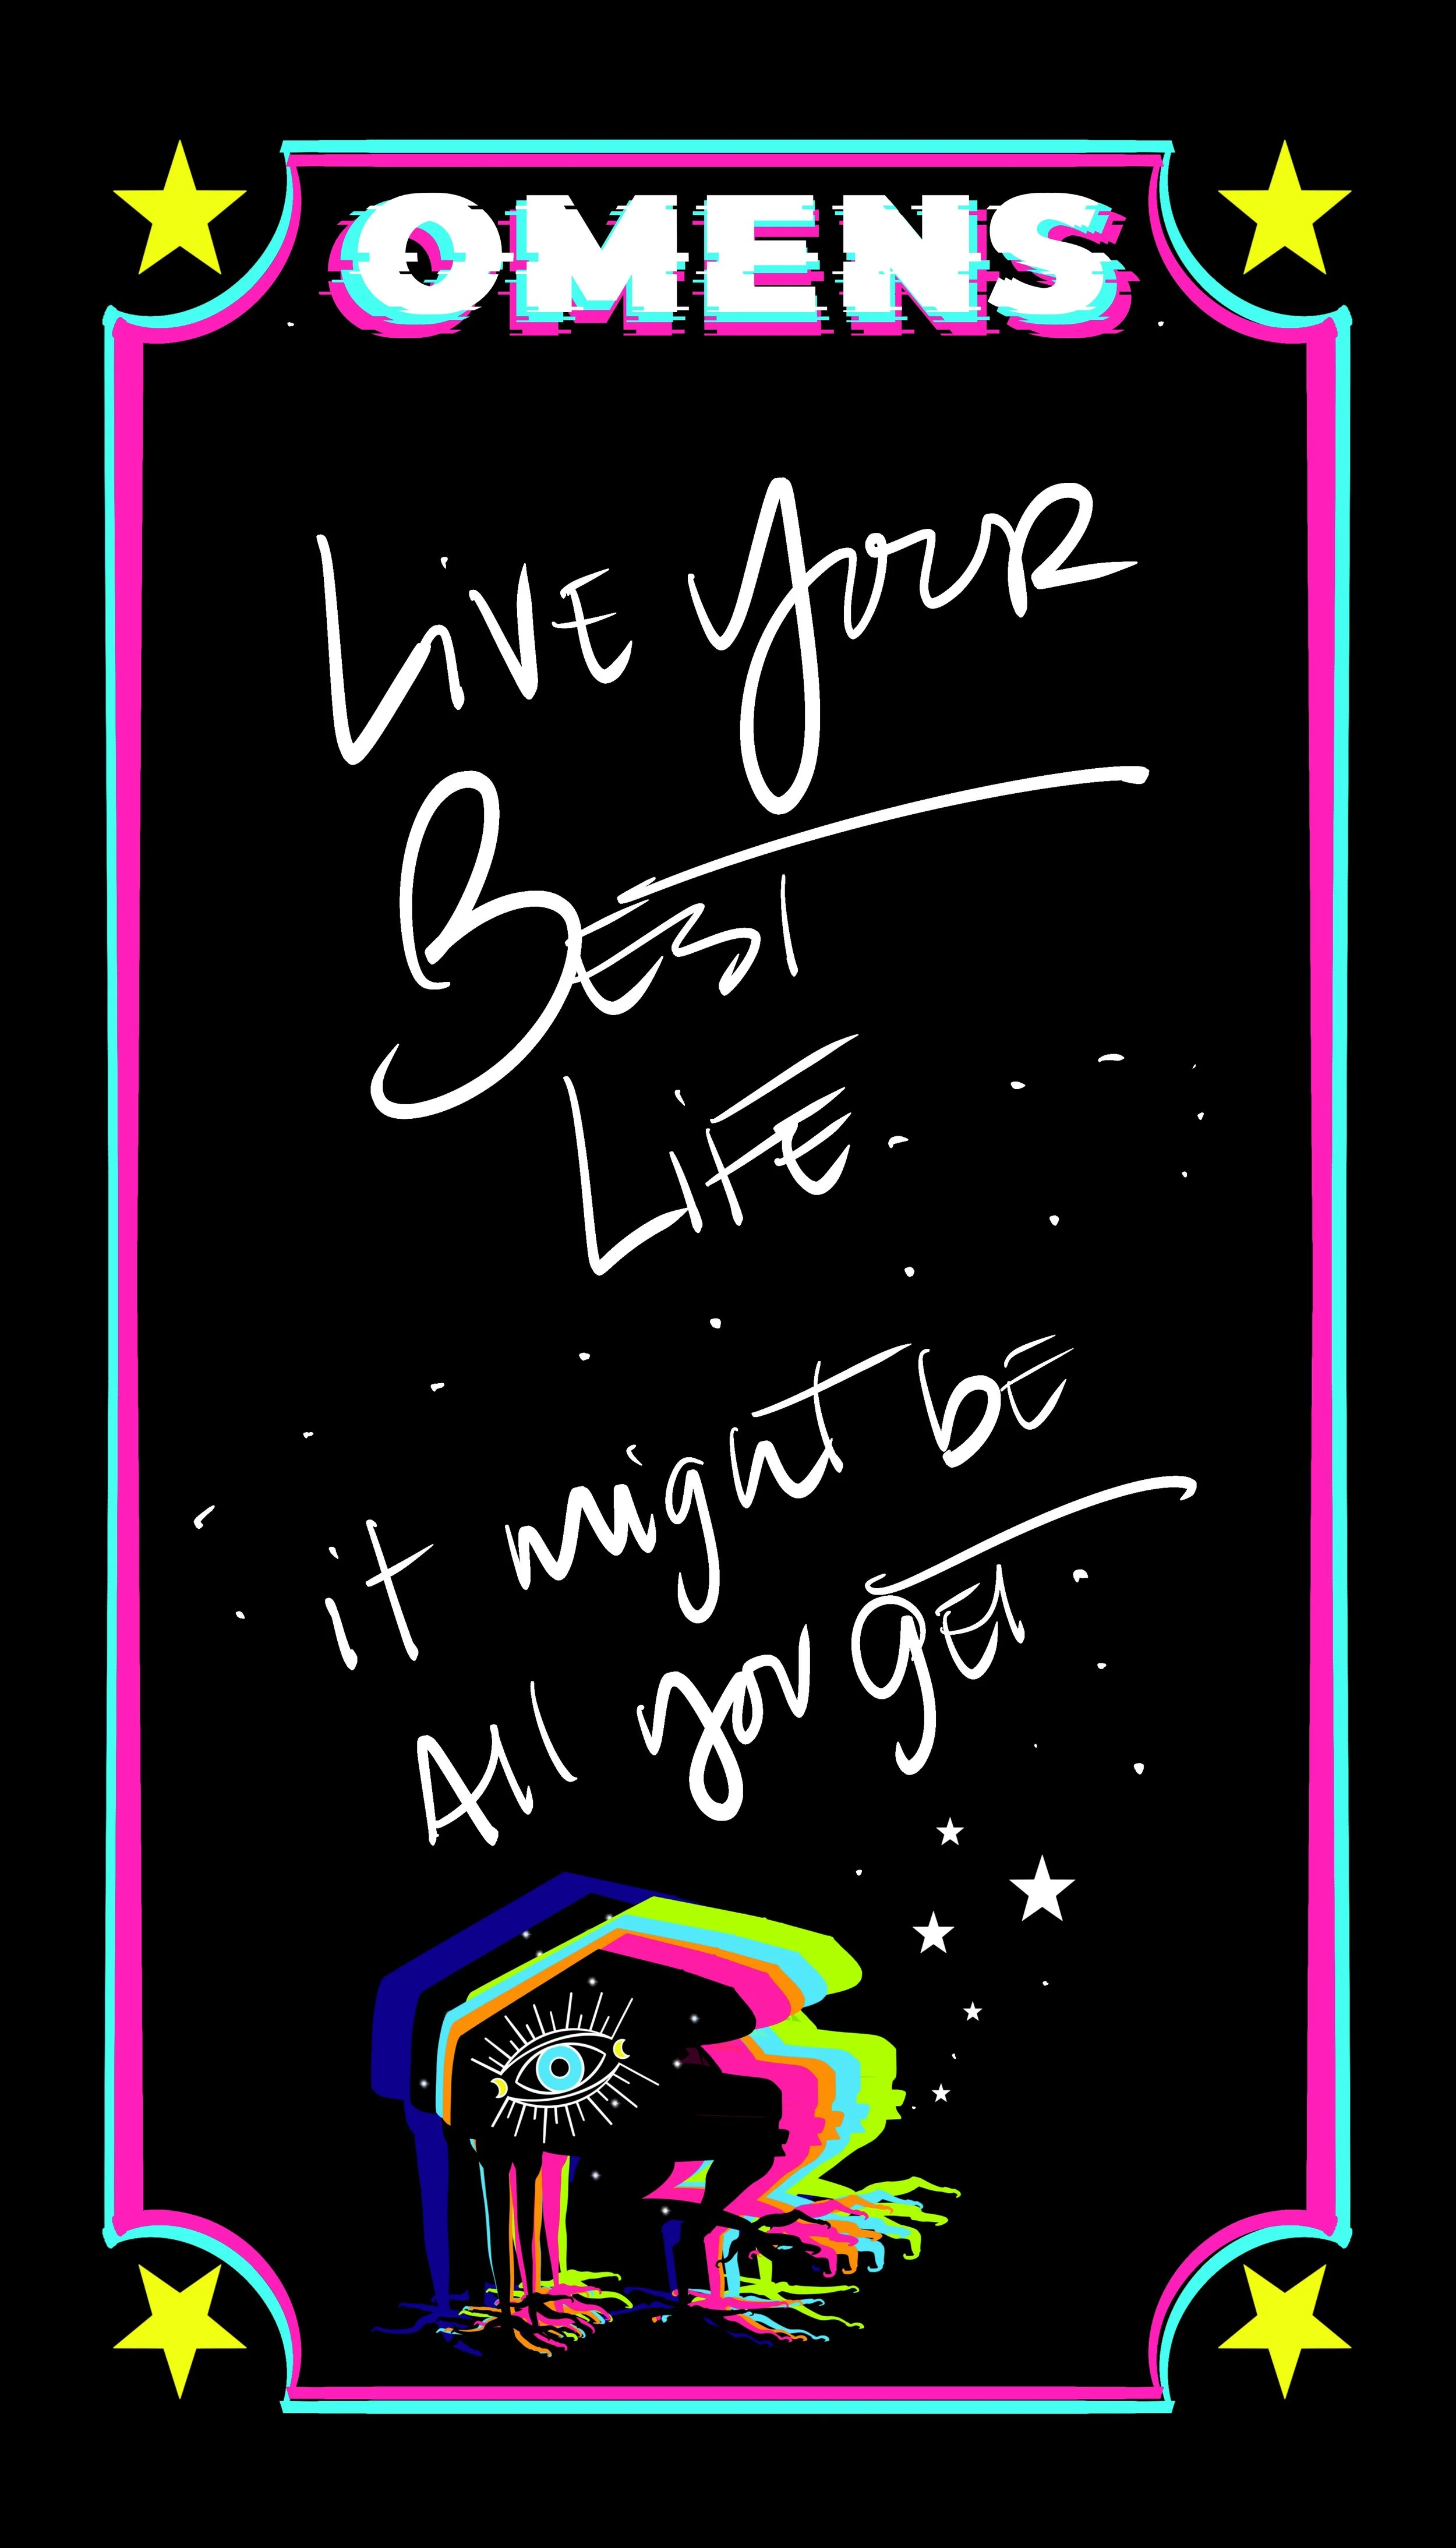 OMENS
LiVE YOUR
BEST
LiFE.
it might bE
All you gEt.